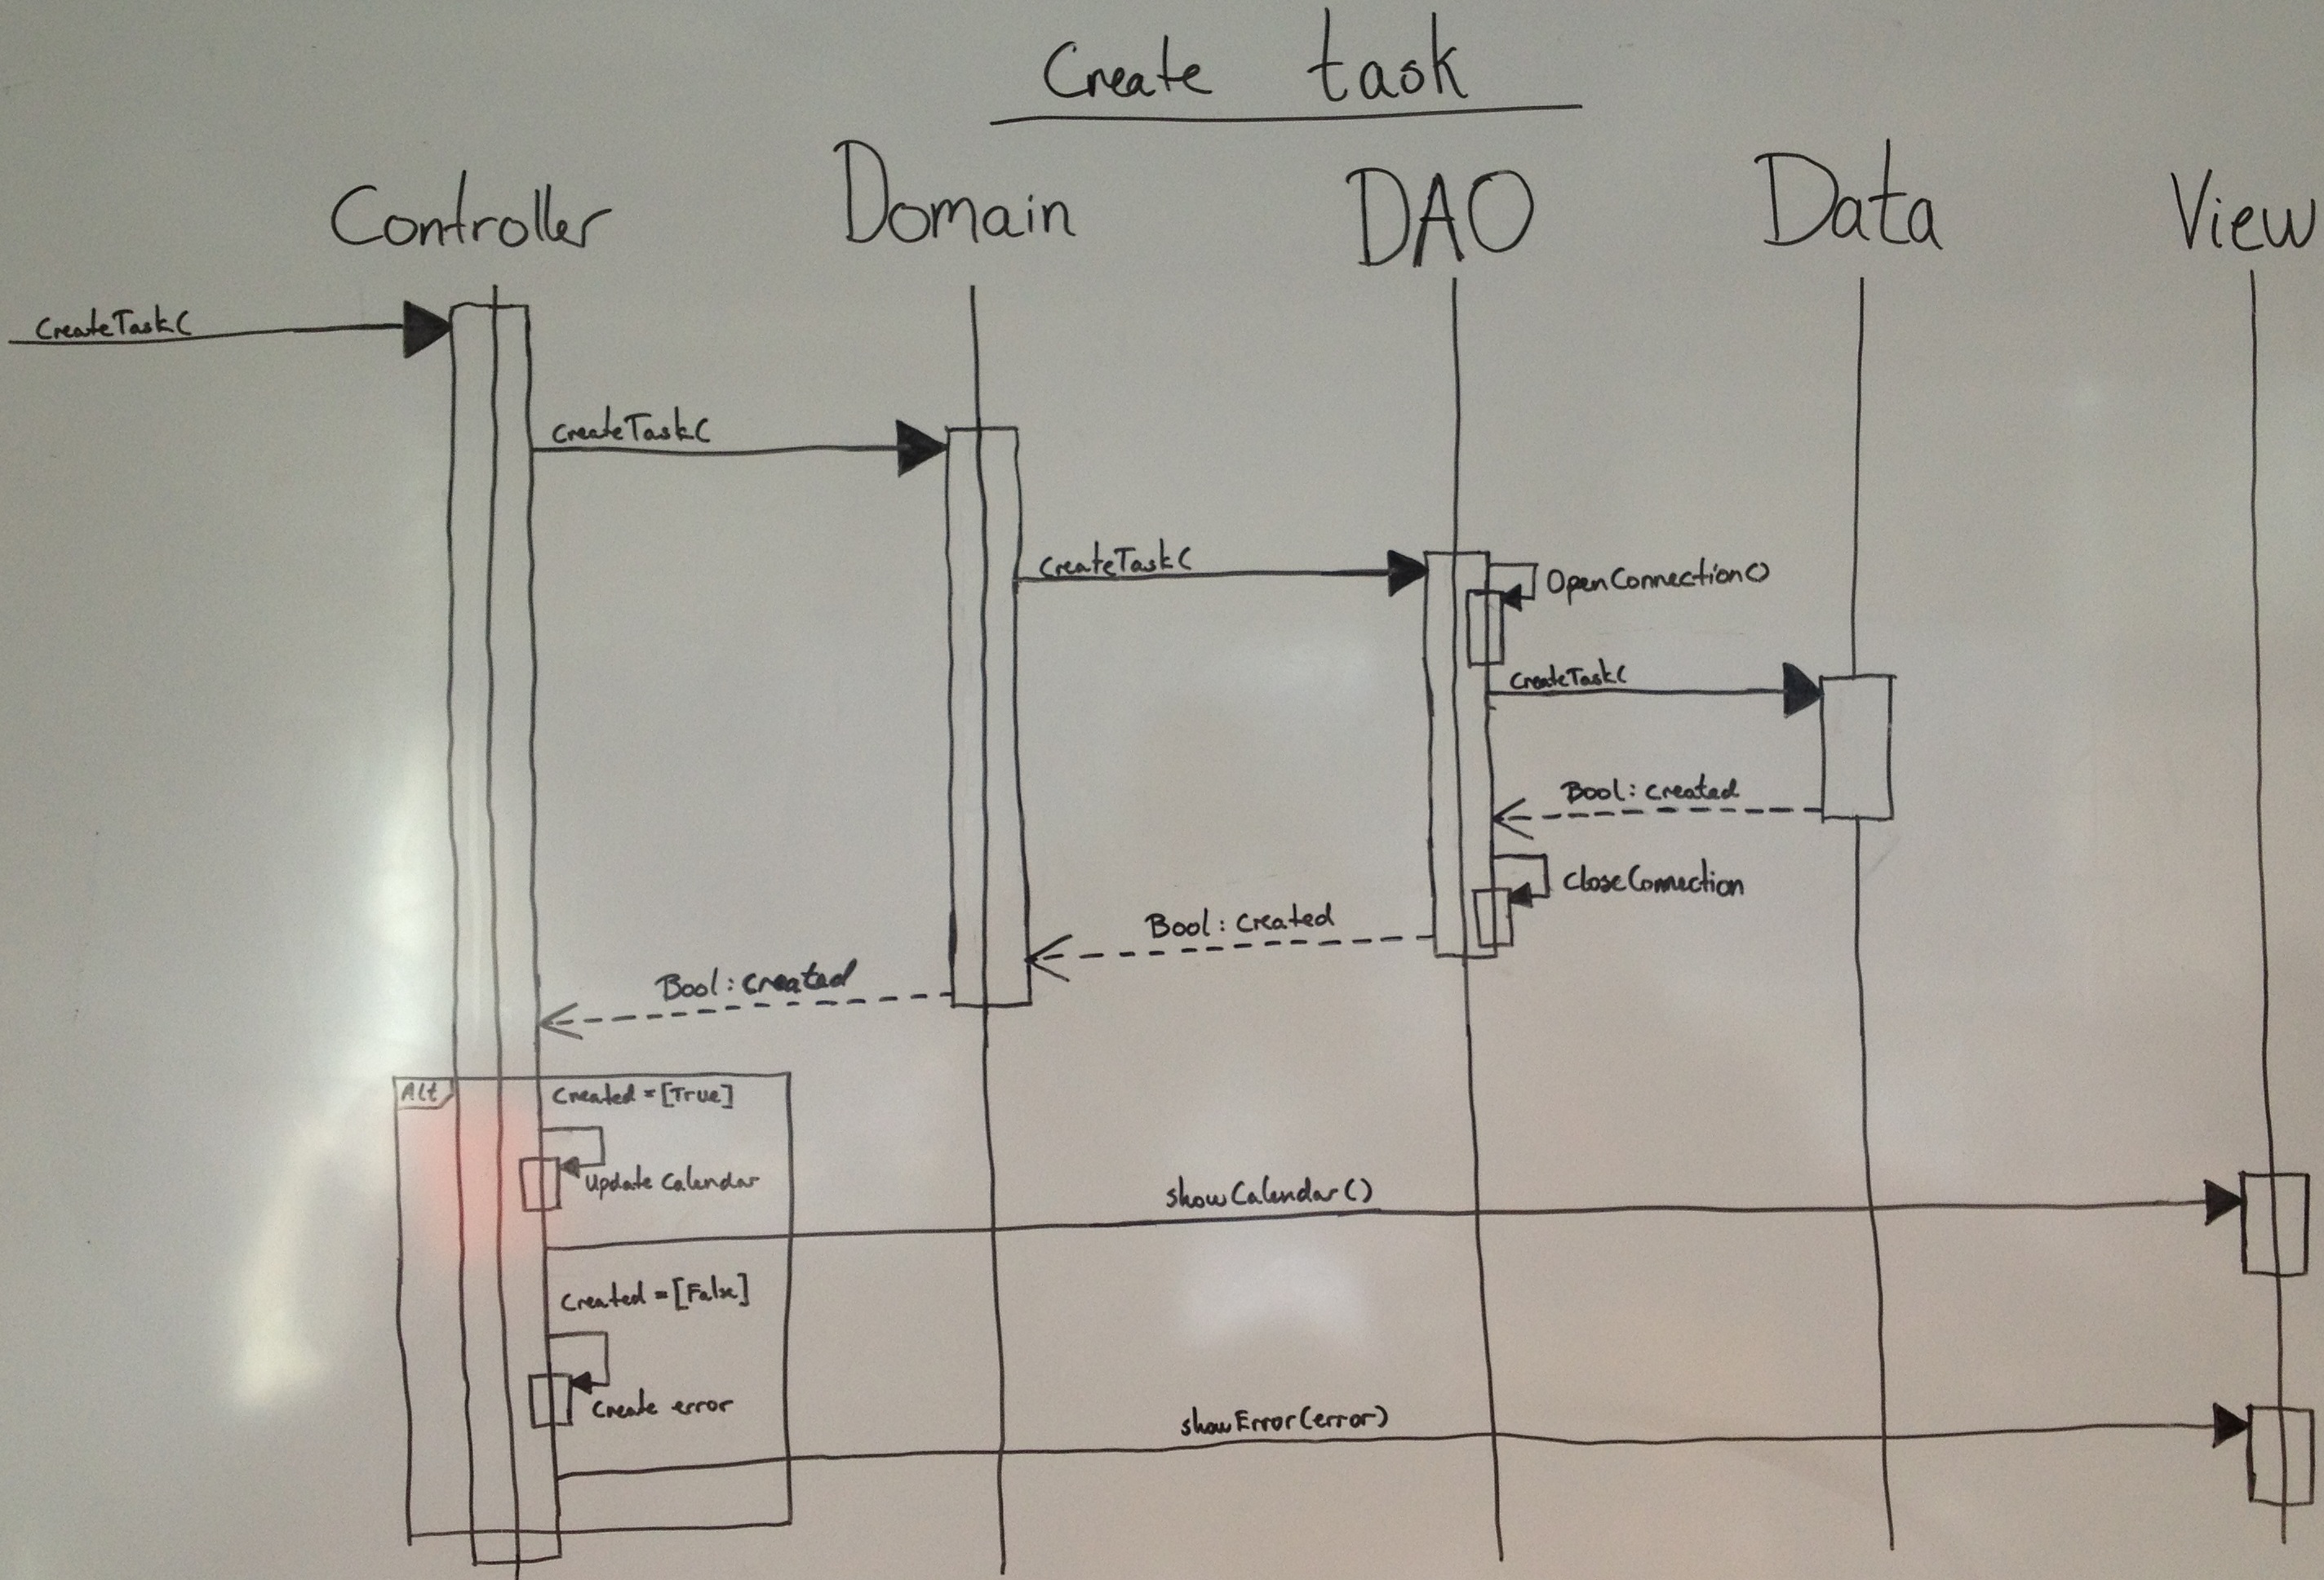 Create task
Controller
Domain
DAO
Data
View
CreateTaskC
createTaskC
createTaskC
OpenConnection()
createTaskC
Bool: created
closeConnection
Bool: created
Bool: created
Alt
Created = [True]
update calendar
showCalendar()
Created = [False]
Create error
showError(error)